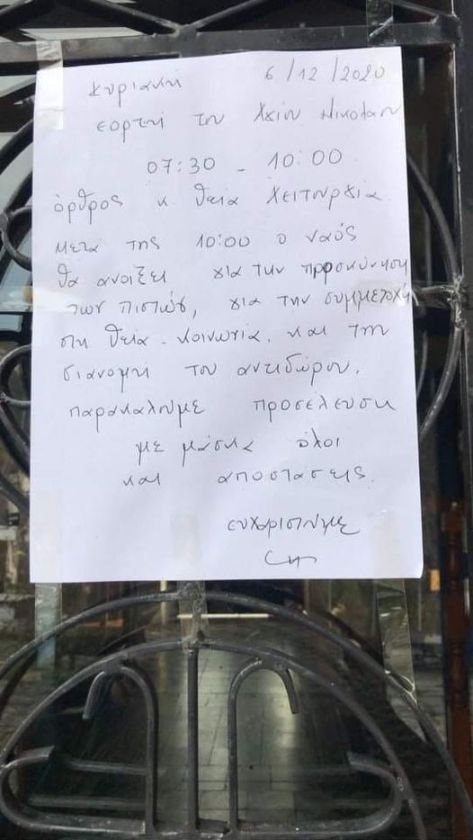 Κυριακη 6/12/2020
εορτη του Αγίου Νικολαου
07:30 - 10:00
όρθρος κ θεία λειτουργία.
μετα της 10:00 ο ναός
θα ανοιξει για την προσκύνηση
των πιστών, για την συμμετοχη
στη θεία κοινωνία. και τη
διανομη του αντιδώρου.
παρακαλούμε προσελευση
με μάσκα όλοι
και αποστασεις.
ευχαριστούμε